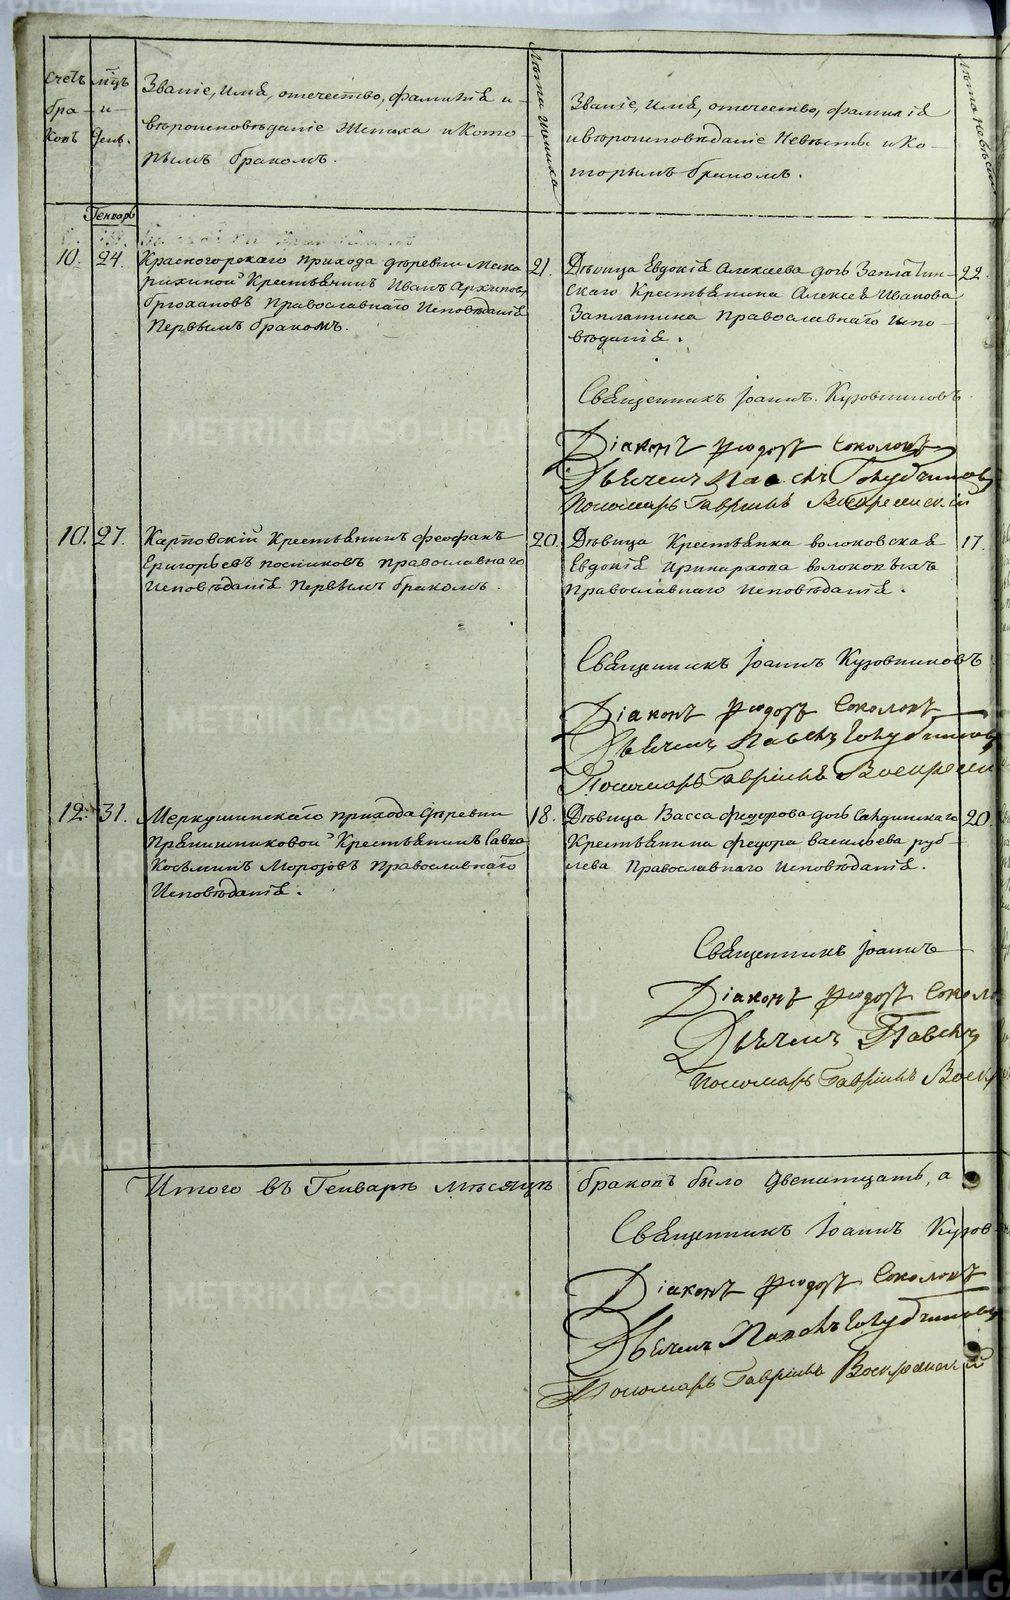 Счетъ бра-ковъ
мцъ и день.
Званіе, Имя, отечество, фамилія и
вѣроисповѣданіе Жениха и кото-
рымъ бракомъ.
Лѣта жениха
Званіе, Имя, отечество, фамилія
и вѣроисповѣданіе Невѣсты и ко-
торымъ бракомъ.
Лѣта невѣсты
Генварь
10. 24. Красногорскаго прихода деревни Мака
рихиной Крестьянинъ Иванъ Архиповъ
брюхановъ Православнаго Исповѣданія
Первымъ бракомъ.
21.
Дѣвица Евдокія Алексѣева дочь Заплатин-
скаго Крестьянина Алексѣя Иванова
Заплатина Православнаго Испо-
вѣданія.
22.
Священникъ Іоаннъ Кузовниковъ
Діаконъ Ѳеодоръ Соколовъ
Дьячекъ Павелъ Голубчиковъ
Пономарь Гавріилъ Воскресенскій
10. 27. Карповскій Крестьянинъ Феофанъ
Григорьевъ посниковъ Православнаго
Исповѣданія Первымъ бракомъ.
20.
Дѣвица Крестьянка волоковская
Евдокія Иринархова волоковыхъ
Православнаго Исповѣданія.
17.
Священникъ Іоаннъ Кузовниковъ
Діаконъ Ѳеодоръ Соколовъ
Дьячекъ Павелъ Голубчиковъ
Пономарь Гавріилъ Воскресен
12. 31. Меркушинскаго прихода деревни
Прянишниковой Крестьянинъ Савва
Козьминъ Морозовъ Православнаго
Исповѣданія.
18.
Дѣвица Васса федорова дочь
Крестьянина федора васильева руб-
лева Православнаго Исповѣданія.
20.
Священникъ Іоаннъ
Діаконъ Ѳеодоръ Соколо
Дьячекъ Павелъ
Пономарь Гавріилъ Воскр
Итого въ Генварѣ мѣсяцѣ браковъ было двенатцать, а
Священникъ Іоаннъ Кузов-
Діаконъ Ѳеодоръ Соколовъ
Дьячекъ Павелъ Голубчиковъ
Пономарь Гавріилъ Воскресенскій
METRIKI.GASO-URAL.RU